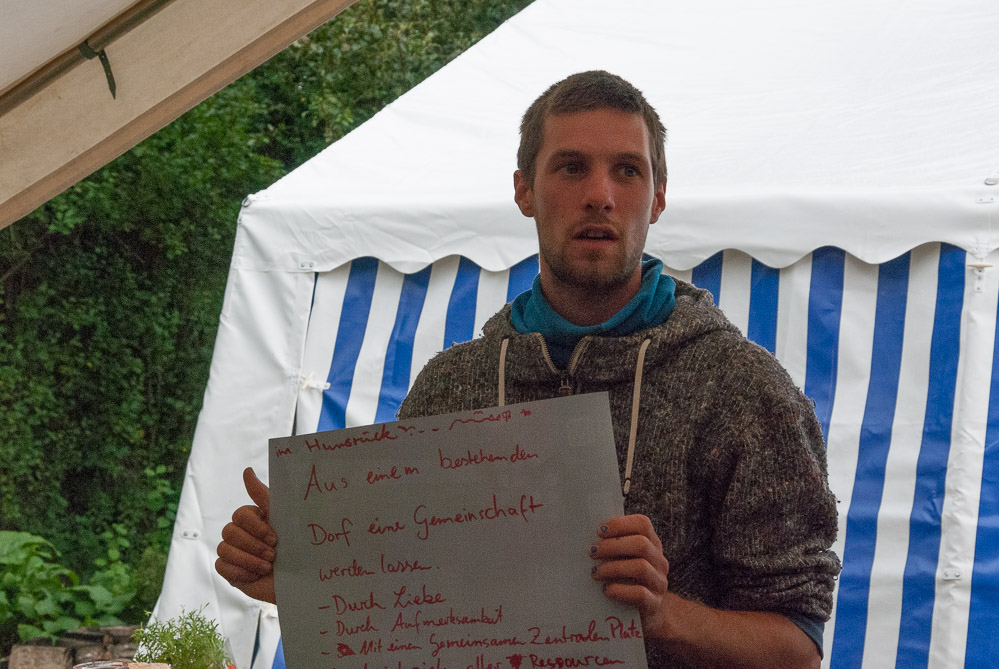 im Hunsrück
Aus einem bestehenden
Dorf eine Gemeinschaft
werden lassen.
- Durch Liebe
- Durch Aufmerksamkeit
- Mit einem Gemeinsamen Zentralen Platz
aller Ressourcen